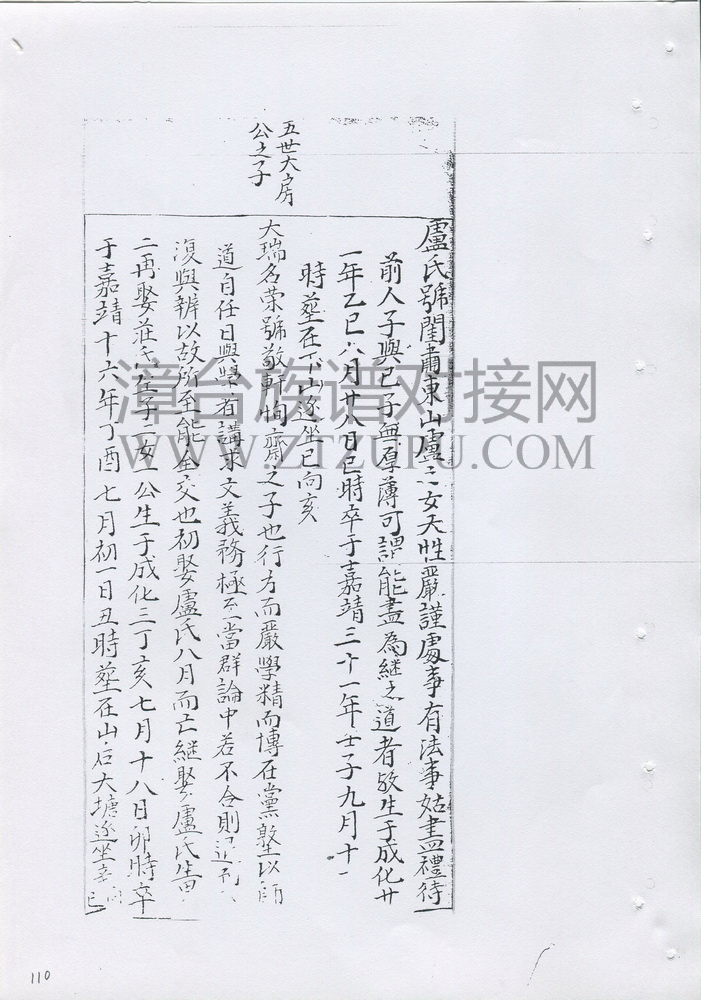 盧氏號閨肅東山盧之女天性嚴謹處事有法事姑盡禮待
前人子與已子無厚薄可謂能盡為継之道者生于成化廿
一年乙巳八月廿八日巳時卒于嘉靖三十一年壬子九月十
時塟在下山逐坐巳向亥
五世大房
公之子
大瑞名荣號敬軒恂齋之子也行方而嚴學精而博在黨塾以師
道自任日與學者講求文義務極至當群論中若不合則
復與辨以故所至能全交也初娶盧氏八月而亡継娶盧氏生男
二再娶莊氏生子二女一公生于成化三丁亥七月十八日卯時卒
于嘉靖十六年丁酉七月初一日丑時塟在山后大塘逐坐
110
漳台族谱对接网
WWW.ZTZUPU.COM